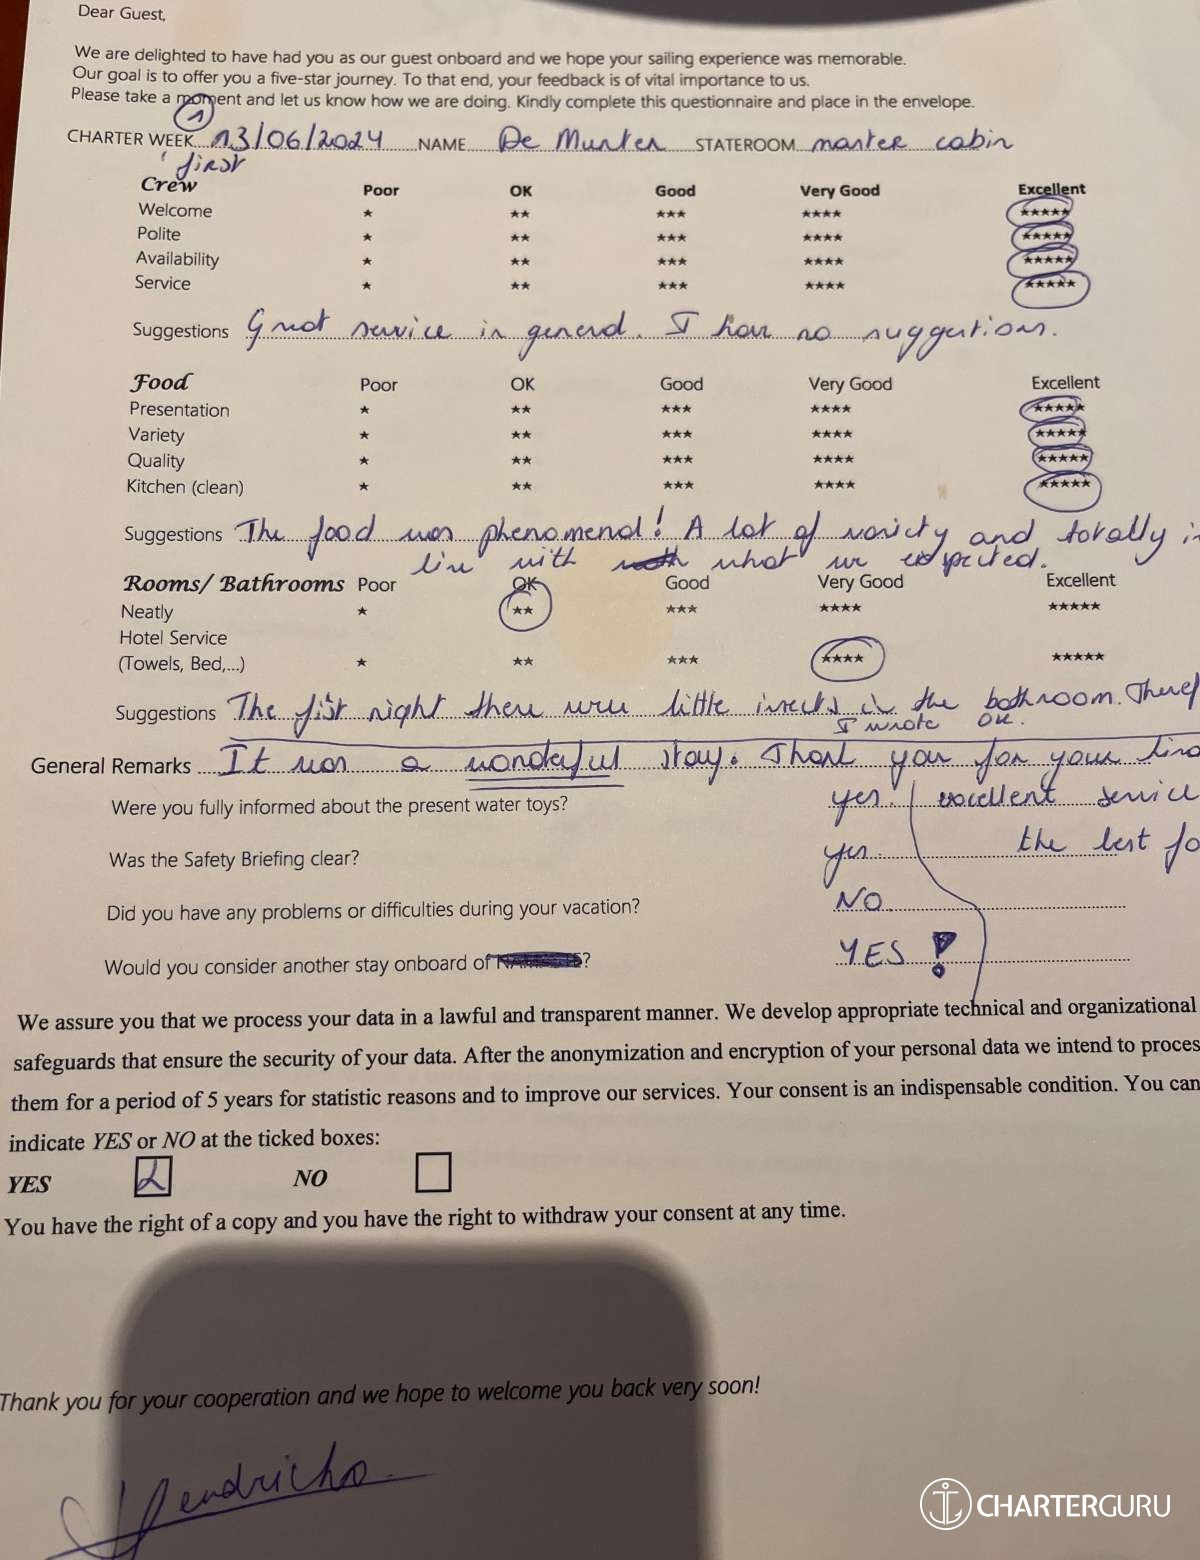 Dear Guest,
We are delighted to have had you as our guest onboard and we hope your sailing experience was memorable.
Our goal is to offer you a five-star journey. To that end, your feedback is of vital importance to us.
Please take a moment and let us know how we are doing. Kindly complete this questionnaire and place in the envelope.
1
CHARTER WEEK 13/06/2024 NAME De Munter STATEROOM master cabin
first
Crew Poor OK Good Very Good Excellent
Welcome ★ ★★ ★★★ ★★★★ ★★★★★
Polite ★ ★★ ★★★ ★★★★ ★★★★★
Availability ★ ★★ ★★★ ★★★★ ★★★★★
Service ★ ★★ ★★★ ★★★★ ★★★★★
Suggestions Great service in general. I have no suggestions.
Food Poor OK Good Very Good Excellent
Presentation ★ ★★ ★★★ ★★★★ ★★★★★
Variety ★ ★★ ★★★ ★★★★ ★★★★★
Quality ★ ★★ ★★★ ★★★★ ★★★★★
Kitchen (clean) ★ ★★ ★★★ ★★★★ ★★★★★
Suggestions The food was phenomenal! A lot of variety and totally in
line with what we expected.
Rooms/ Bathrooms Poor OK Good Very Good Excellent
Neatly ★ ★★ ★★★ ★★★★ ★★★★★
Hotel Service
(Towels, Bed,...) ★ ★★ ★★★ ★★★★ ★★★★★
Suggestions The first night there were little insects in the bathroom. Theref
I wrote OK.
General Remarks It was a wonderful stay. Thank you for your
Were you fully informed about the present water toys? yes. excellent service
Was the Safety Briefing clear? yes. the best fo
Did you have any problems or difficulties during your vacation? NO
Would you consider another stay onboard of ? YES!
We assure you that we process your data in a lawful and transparent manner. We develop appropriate technical and organizational
safeguards that ensure the security of your data. After the anonymization and encryption of your personal data we intend to proces
them for a period of 5 years for statistic reasons and to improve our services. Your consent is an indispensable condition. You can
indicate YES or NO at the ticked boxes:
YES NO
You have the right of a copy and you have the right to withdraw your consent at any time.
Thank you for your cooperation and we hope to welcome you back very soon!
Hendrickx
CHARTERGURU